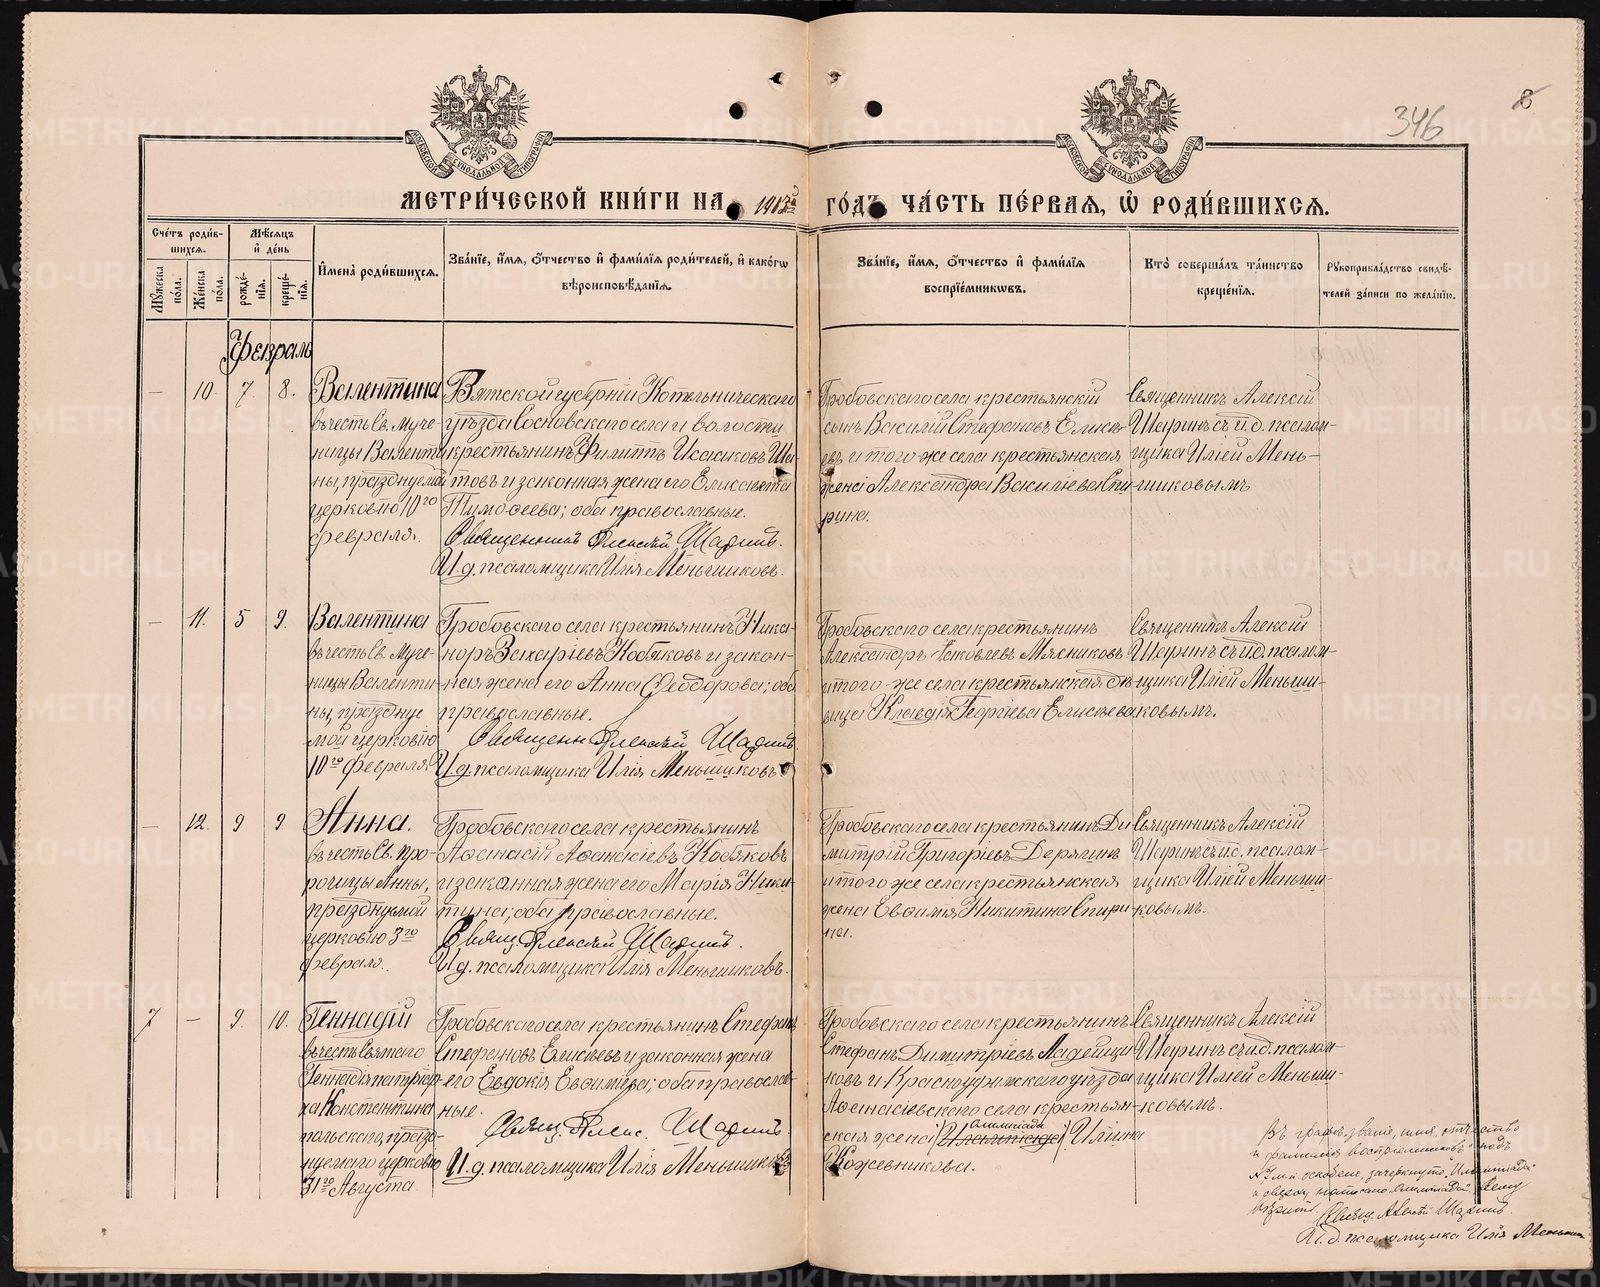 346
8
МОСКОВСКОЙ СУНОДАЛЬНОЙ ТИПОГРАФІИ
МОСКОВСКОЙ СУНОДАЛЬНОЙ ТИПОГРАФІИ
МЕТРИ́ЧЕСКОЙ КНИ́ГИ НА 1913 ГО́ДЪ ЧА́СТЬ ПЕ́РВАЯ, Ѽ РОДИ́ВШИХСЯ.
Сче́тъ роди́в-
шихся.
Мѣ́сяцъ
и҆ де́нь
Му́жеска по́ла.
Же́нска по́ла.
рожде́-
нїя.
креще́-
нїя.
И҆мена̀ роди́вшихся.
Зва́нїе, и҆́мя, ѻ҆́тчество и҆ фами́лїя роди́телей, и҆ како́гѡ
вѣроисповѣ́данїя.
Зва́нїе, и҆́мя, ѻ҆́тчество и҆ фами́лїя
воспрїе́мникѡвъ.
Кто̀ соверша́лъ та́инство
креще́нїя.
Рукоприкла́дство свидѣ́-
телей за́писи по жела́нїю.
Февраль
— 10. 7. 8.
Валентина
въ честь Св. Муче-
ницы Валенти
ны, празднуемой
церковію 10го
февраля.
Вятской губерніи Котельническаго
уѣзда Сосновскаго села и волости
крестьянинъ Филиппъ Исааковъ Ша-
товъ и законная жена его Елисавета
Тимоѳеева; оба православные.
Священникъ Алексѣй Шаринъ.
И.д. псаломщика Илія Меньшиковъ.
Гробовскаго села крестьянскій
сынъ Василій Стефановъ Елисе-
евъ и того-же села крестьянская
жена Александра Василіева Спи-
рина.
Священникъ Алексій
Шаринъ съ и.д. псалом-
щика Иліей Мень-
шиковымъ
— 11. 5 9.
Валентина
въ честь Св. Муче-
ницы Валенти-
ны, праздную
мой церковію
10го февраля
Гробовскаго села крестьянинъ Ника-
норъ Захаріевъ Кобяковъ и закон-
ная жена его Анна Ѳеодорова; оба
православные.
Священн. Алексѣй Шаринъ.
И.д. псаломщика Илія Меньшиковъ
Гробовскаго села крестьянинъ
Александръ Яковлевъ Мясниковъ
и того-же села крестьянская дѣ-
вица Клавдія Георгіева Елисеева
Священникъ Алексій
Шаринъ съ и.д. псалом-
щика Иліей Меньши-
ковымъ.
— 12. 9 9.
Анна.
въ честь Св. про-
рочицы Анны,
празднуемой
церковію 3го
февраля.
Гробовскаго села крестьянинъ
Аѳанасій Аѳанасіевъ Кобяковъ
и законная жена его Марія Ники-
тина; оба православные.
Свящ. Алексѣй Шаринъ.
И.д. псаломщика Илія Меньшиковъ.
Гробовскаго села крестьянинъ Ди
митрій Григоріевъ Дерягинъ
и того же села крестьянская
жена Евѳимія Никитина Спири-
на.
Священникъ Алексій
Шаринъ съ и.д. псалом-
щика Иліей Меньши-
ковымъ.
7 — 9. 10.
Геннадій
въ честь Святаго
Геннадія патріар-
ха Константино
польскаго, празд-
нуемаго церковію
31го Августа.
Гробовскаго села крестьянинъ Стефанъ
Стефановъ Елисѣевъ и законная жена
его Евдокія Евѳиміева; оба православ-
ные.
Свящ. Алекс. Шаринъ.
И.д. псаломщика Илія Меньшиковъ
Гробовскаго села крестьянинъ
Стефанъ Димитріевъ Ладейщи
ковъ и Красноуфимскаго уѣзда
Аѳанасіевскаго села крестьян-
олимпіада
ская жена (Илампіада) Иліина
Кожевникова.
Священникъ Алексій
Шаринъ съ и.д. псалом-
щика Иліей Меньши-
ковымъ.
Въ графѣ званіе, имя, отчество
и фамилія воспріемниковъ подъ
№ 7 м.п. оскоблено, зачеркнуто „Илампіада"
и сверху написано „олимпіада", сему
вѣрить. Свящ. Алексѣй Шаринъ.
И.д. псаломщика Илія Меньшик
METRIKI.GASO-URAL.RU